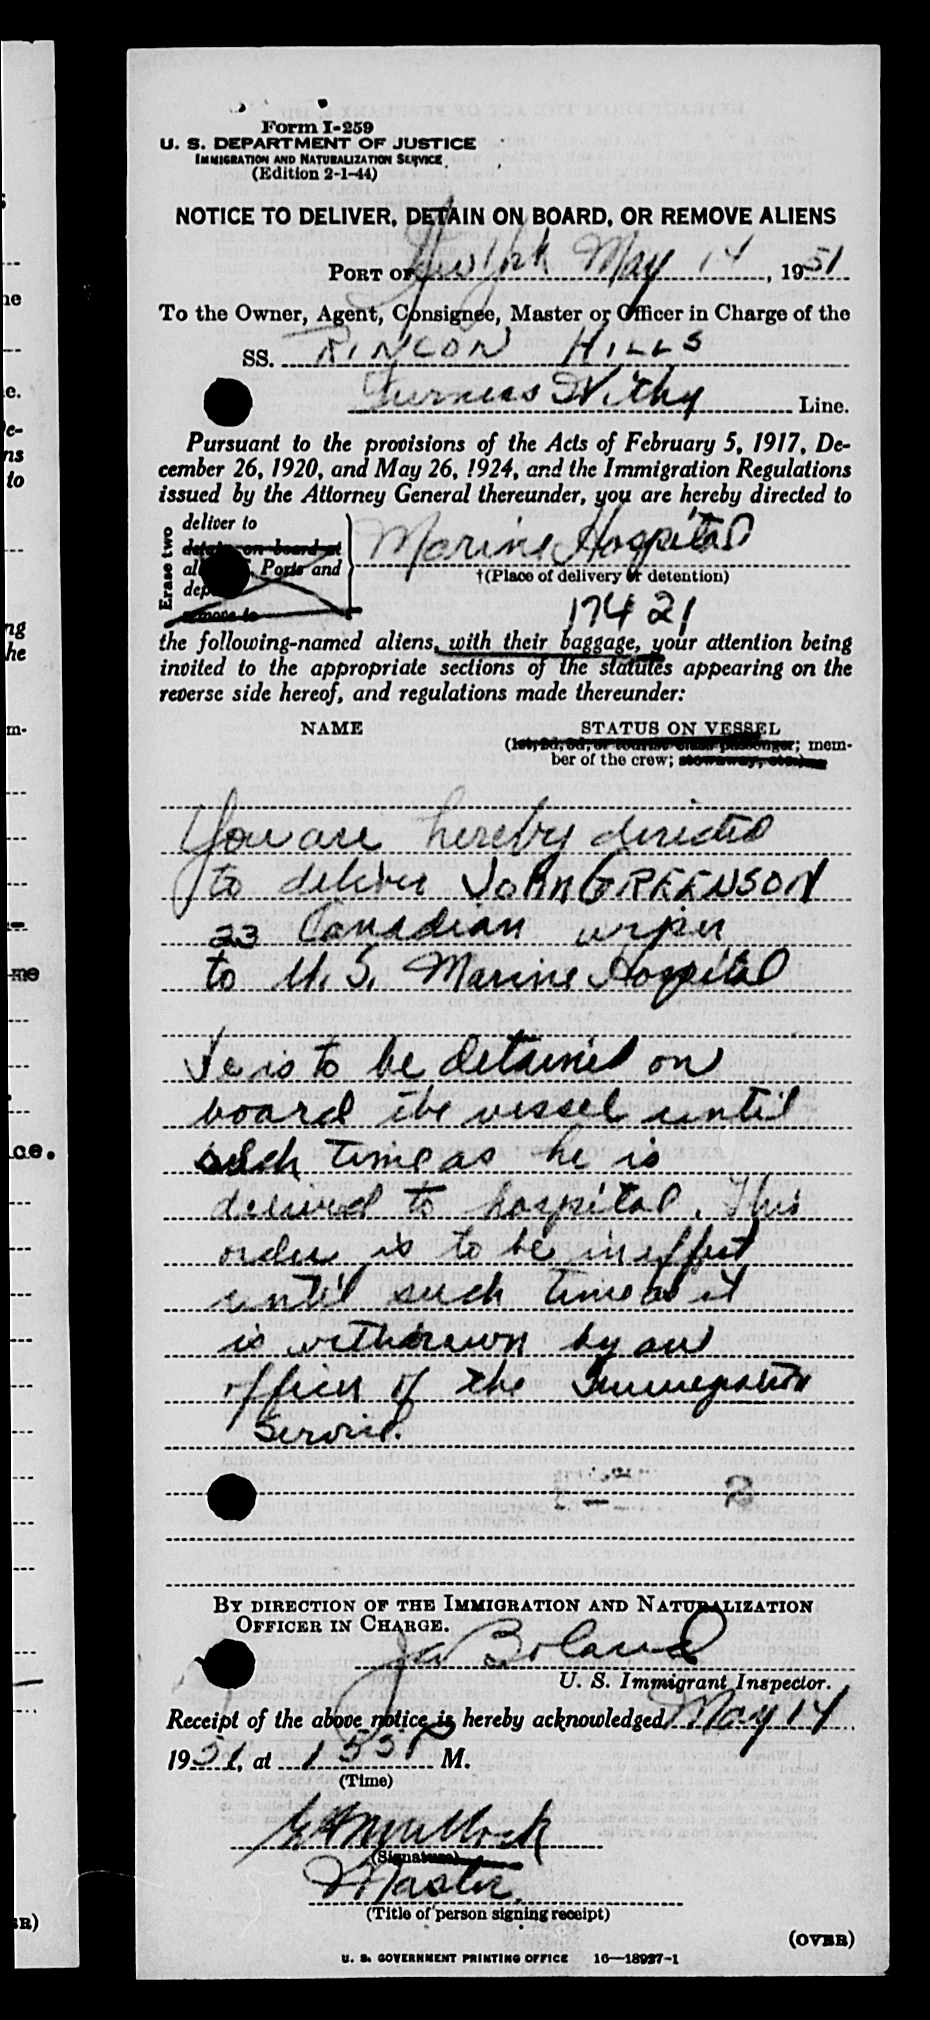 Form I-259
U. S. DEPARTMENT OF JUSTICE
IMMIGRATION AND NATURALIZATION SERVICE
(Edition 2-1-44)
NOTICE TO DELIVER, DETAIN ON BOARD, OR REMOVE ALIENS
PORT OF New York May 14, 1951
To the Owner, Agent, Consignee, Master or Officer in Charge of the
SS. RINCON HILLS
Furness Withy Line.
Pursuant to the provisions of the Acts of February 5, 1917, De-
cember 26, 1920, and May 26, 1924, and the Immigration Regulations
issued by the Attorney General thereunder, you are hereby directed to
Erase two
deliver to
detain on board at
al Ports and
dep
remove to
Marine Hospital
†(Place of delivery or detention)
17421
the following-named aliens, with their baggage, your attention being
invited to the appropriate sections of the statutes appearing on the
reverse side hereof, and regulations made thereunder:
NAME STATUS ON VESSEL
(1st, 2d, 3d, or tourist class passenger; mem-
ber of the crew; stowaway, etc.)
You are hereby directed
to deliver JOHN GREENSON
23 Canadian wiper
to U. S. Marine Hospital
He is to be detained on
board the vessel until
such time as he is
delivered to hospital. This
order is to be in effect
until such time as it
is withdrawn by an
officer of the Immigration
Service.
BY DIRECTION OF THE IMMIGRATION AND NATURALIZATION
OFFICER IN CHARGE.
Boland
U. S. Immigrant Inspector.
Receipt of the above notice is hereby acknowledged May 14
1951, at 155 P M.
(Time)
(Signature)
Master
(Title of person signing receipt)
(OVER)
U. S. GOVERNMENT PRINTING OFFICE 16—18927-1